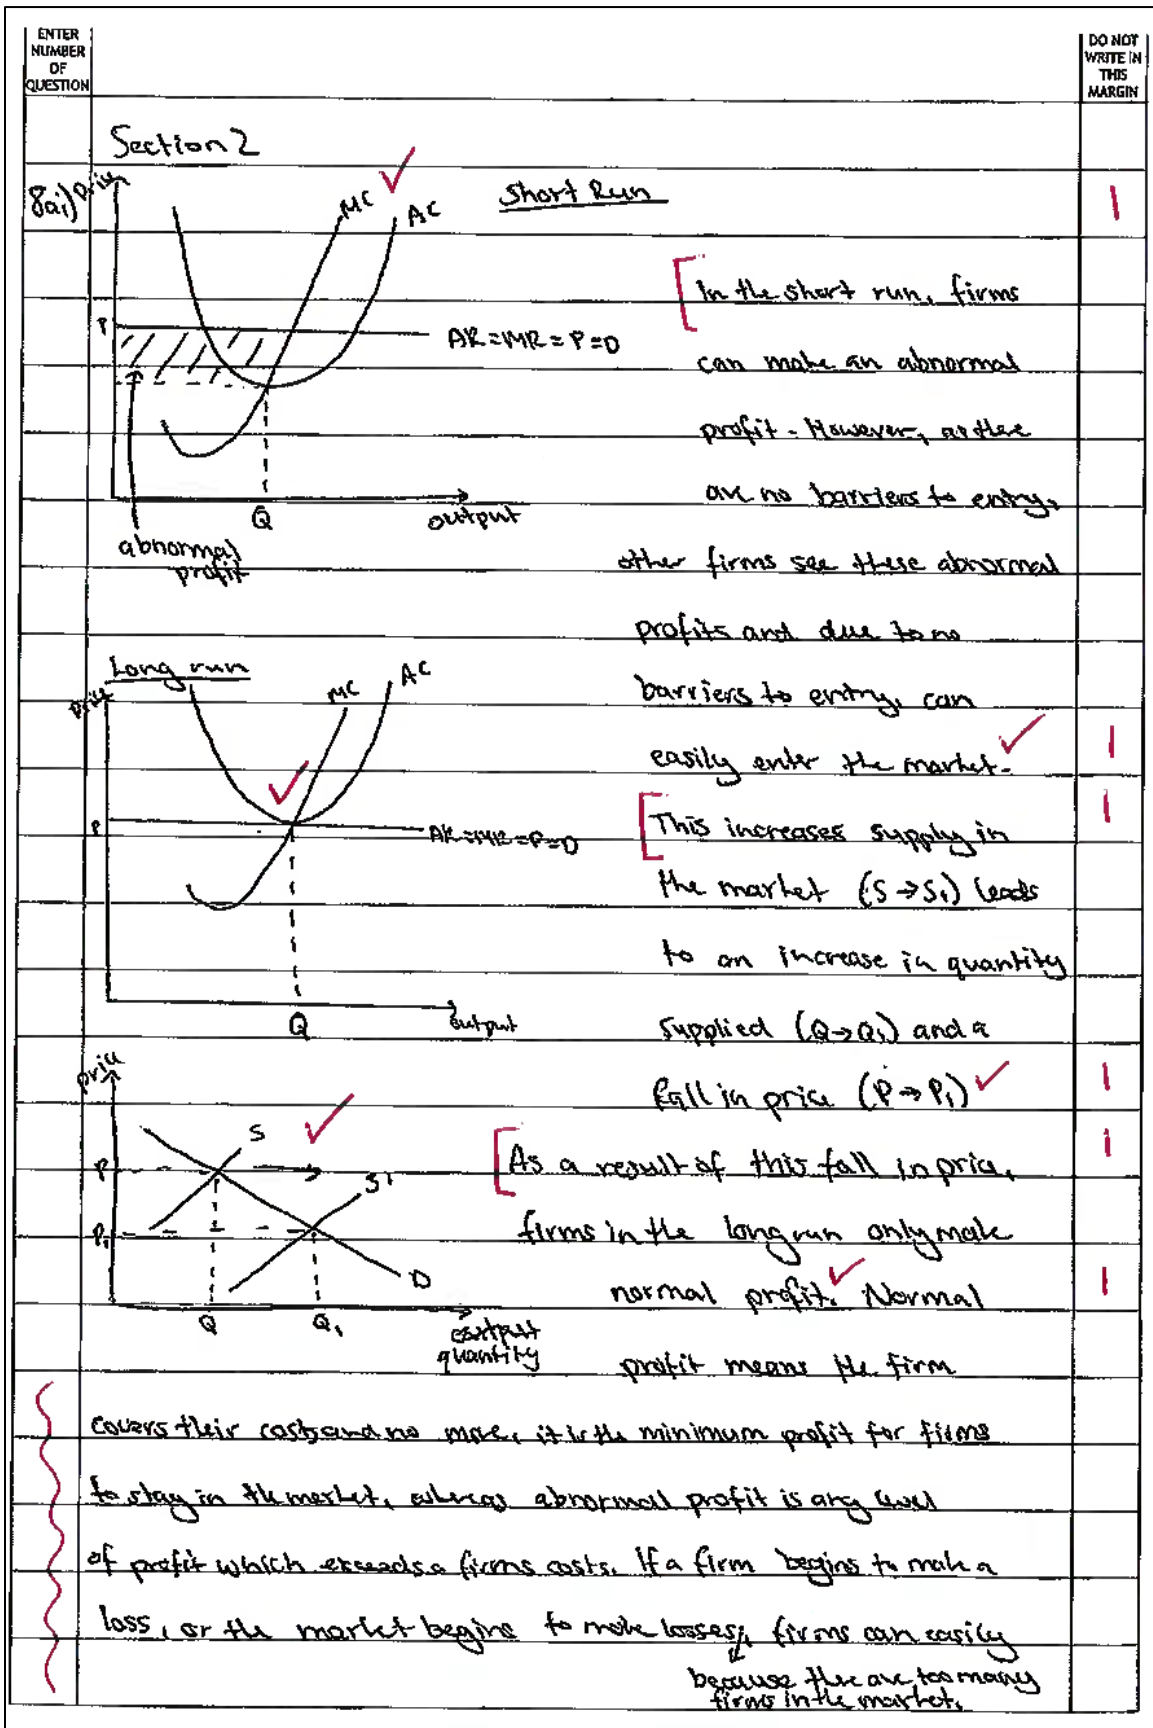 ENTER
NUMBER
OF
QUESTION
DO NOT
WRITE IN
THIS
MARGIN
Section 2
8ai)
Price
MC
AC
Short Run
1
P
AR=MR=P=D
Q
output
abnormal
profit
In the short run, firms
can make an abnormal
profit. However, as there
are no barriers to entry,
other firms see these abnormal
profits and due to no
barriers to entry, can
easily enter the market.
1
Long run
Price
MC
AC
P
AR=MR=P=D
Q
output
1
This increases supply in
the market (S→S₁) leads
to an increase in quantity
supplied (Q→Q₁) and a
fall in price (P→P₁)
1
price
S
S1
P
P₁
D
Q
Q₁
quantity
1
As a result of this fall in price,
firms in the long run only make
normal profit. Normal
1
profit means the firm
covers their costs and no more, it is the minimum profit for firms
to stay in the market, whereas abnormal profit is any level
of profit which exceeds a firms costs. If a firm begins to make a
loss, or the market begins to make losses, firms can easily
because there are too many
firms in the market.